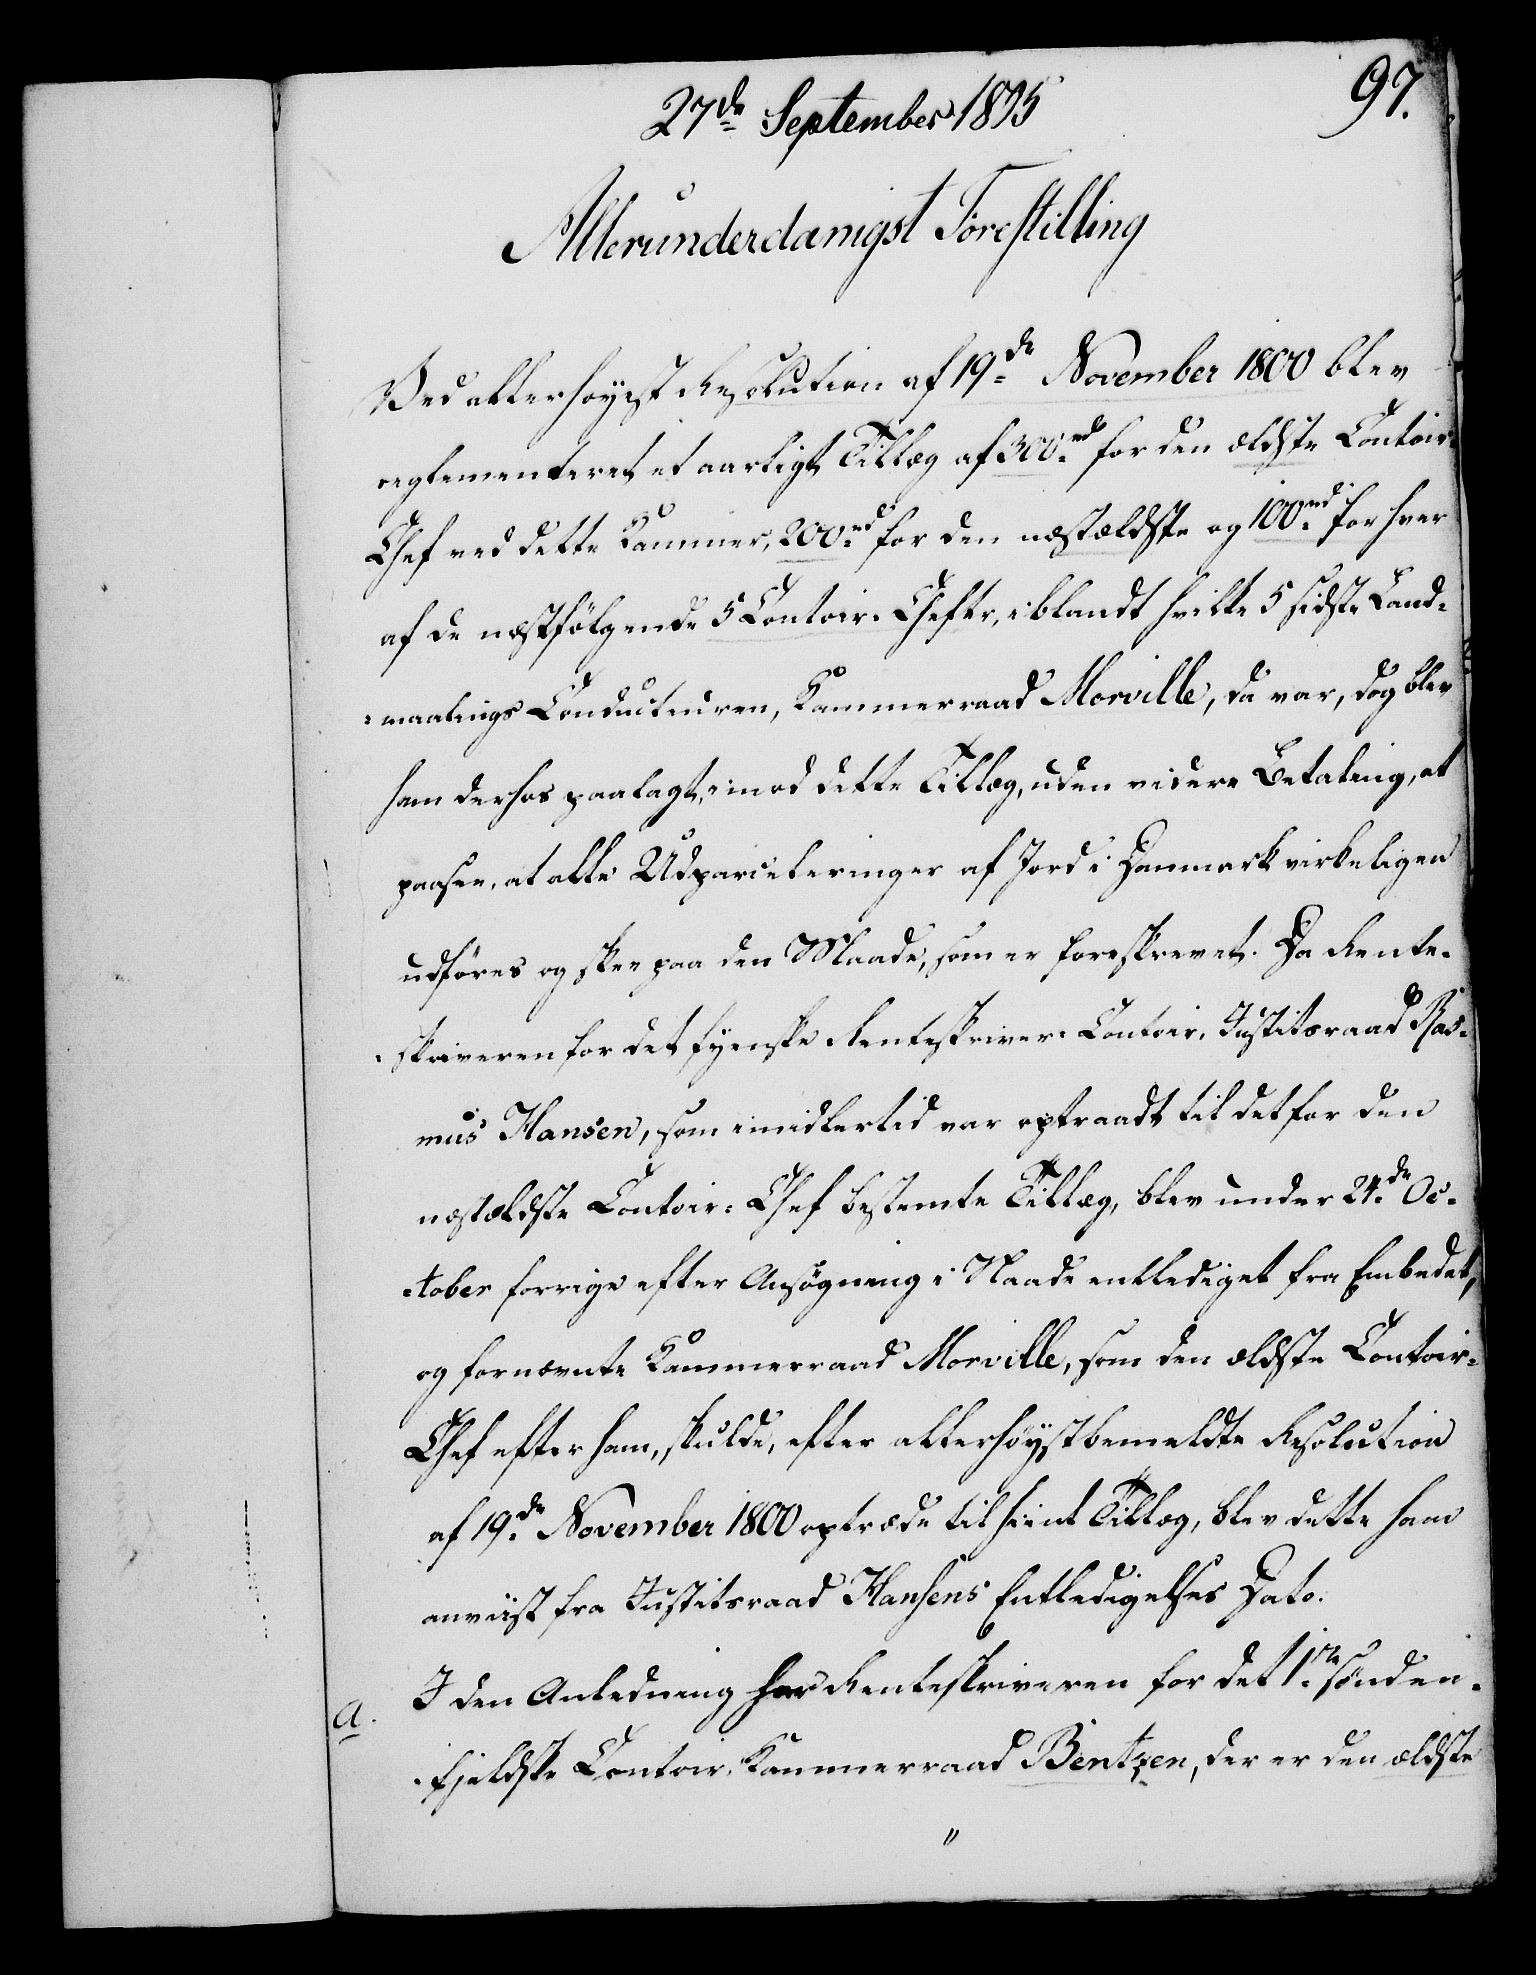 97.
27de September 1805
Allerunderdanigst Forestilling
Ved allerhøyest Resolution af 19de November 1800 blev
reglementeret et aarligt Tillæg af 300rd for den ældste Contoir-
Chef ved dette Kammer, 200rd for den næstældste og 100rd for hver
af de næstfölgende 5 Contoir-Chefer, iblandt hvilke 5 sidste Land-
maalings Conducteuren, Kammerraad Morville, da var, dog blev
ham derhos paalagt, imod dette Tillæg, uden videre Betaling, at
paasee, at alle Udparceleringer af Jord i Danmark virkeligen
udföres og skee paa den Maade, som er foreskrevet. Da Rente-
skriveren for det fyenske Renteskriver-Contoir, Justitsraad Ras-
mus Hansen, som imidlertid var optraadt til det for den
næstældste Contoir-Chef bestemte Tillæg, blev under 24de Oc-
tober forrige efter Ansögning i Naade entlediget fra Embedet,
og fornævnte Kammerraad Morville, som den ældste Contoir-
Chef efter ham, skulde, efter allerhöystbemeldte Resolution
af 19de November 1800 optræde til hiint Tillæg, blev dette ham
anviist fra Justitsraad Hansens Entledigelses Dato.
a. I den Anledning har Renteskriveren for det 1ste sönden-
fjeldske Contoir, Kammerraad Bentzen, der er den ældste
"